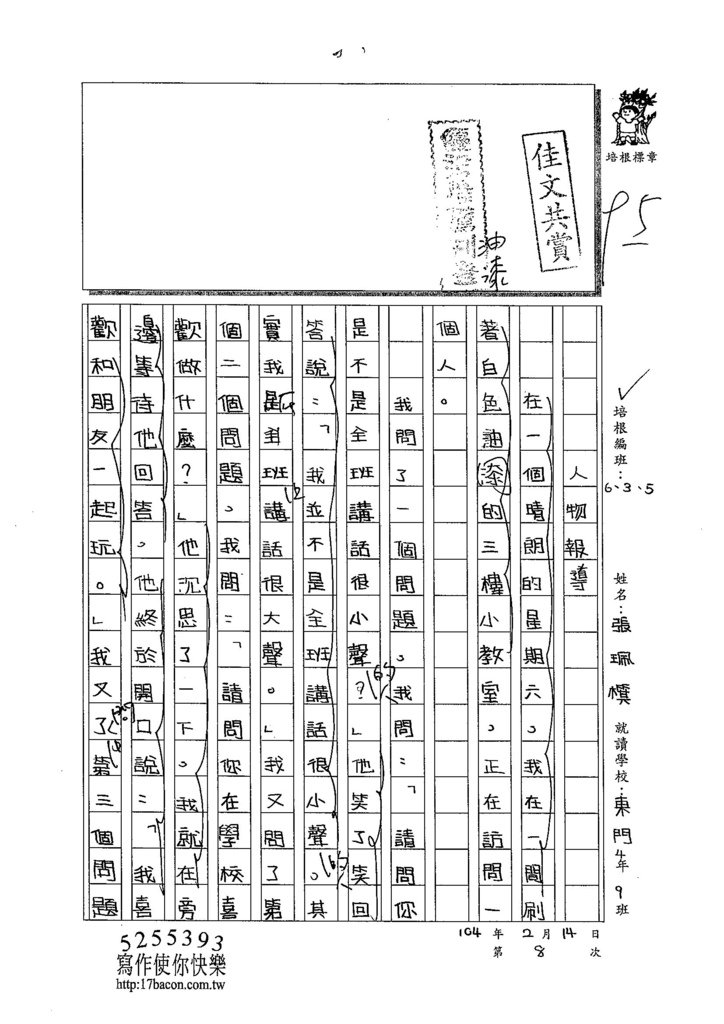 培根標章
95
佳文共賞
油漆
培根編班：6、3、5
姓名：張珮慎
就讀學校：東門4年9班
104年2月14日
第8次
人物報導
在一個晴朗的星期六。我在一間刷
著白色油漆的三樓小教室。正在訪問一
個人。
我問了一個問題。我問：「請問你
是不是全班講話很小聲？」他笑了。笑回
答說：「我並不是全班講話很小聲。其
實我是全班講話很大聲。」我又問了第
二個問題。我問：「請問你在學校喜
歡做什麼？」他沉思了一下。我就在旁
邊等待他回答。他終於開口說：「我喜
歡和朋友一起玩。」我又了第三個問題
5255393
寫作使你快樂
http:17bacon.com.tw